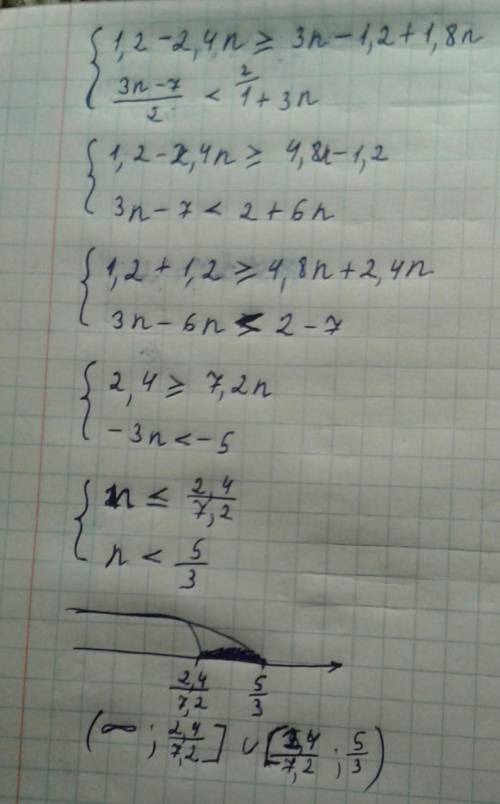 { 1,2 - 2,4n ≥ 3n - 1,2 + 1,8n
(3n-7)/2 < 1^(2/ + 3n
{ 1,2 - 2,4n ≥ 4,8n - 1,2
3n - 7 < 2 + 6n
{ 1,2 + 1,2 ≥ 4,8n + 2,4n
3n - 6n < 2 - 7
{ 2,4 ≥ 7,2n
-3n < -5
{ n ≤ 2,4/7,2
n < 5/3
2,4/7,2 5/3
(∞ ; 2,4/7,2] ∪ [2,4/7,2 ; 5/3)